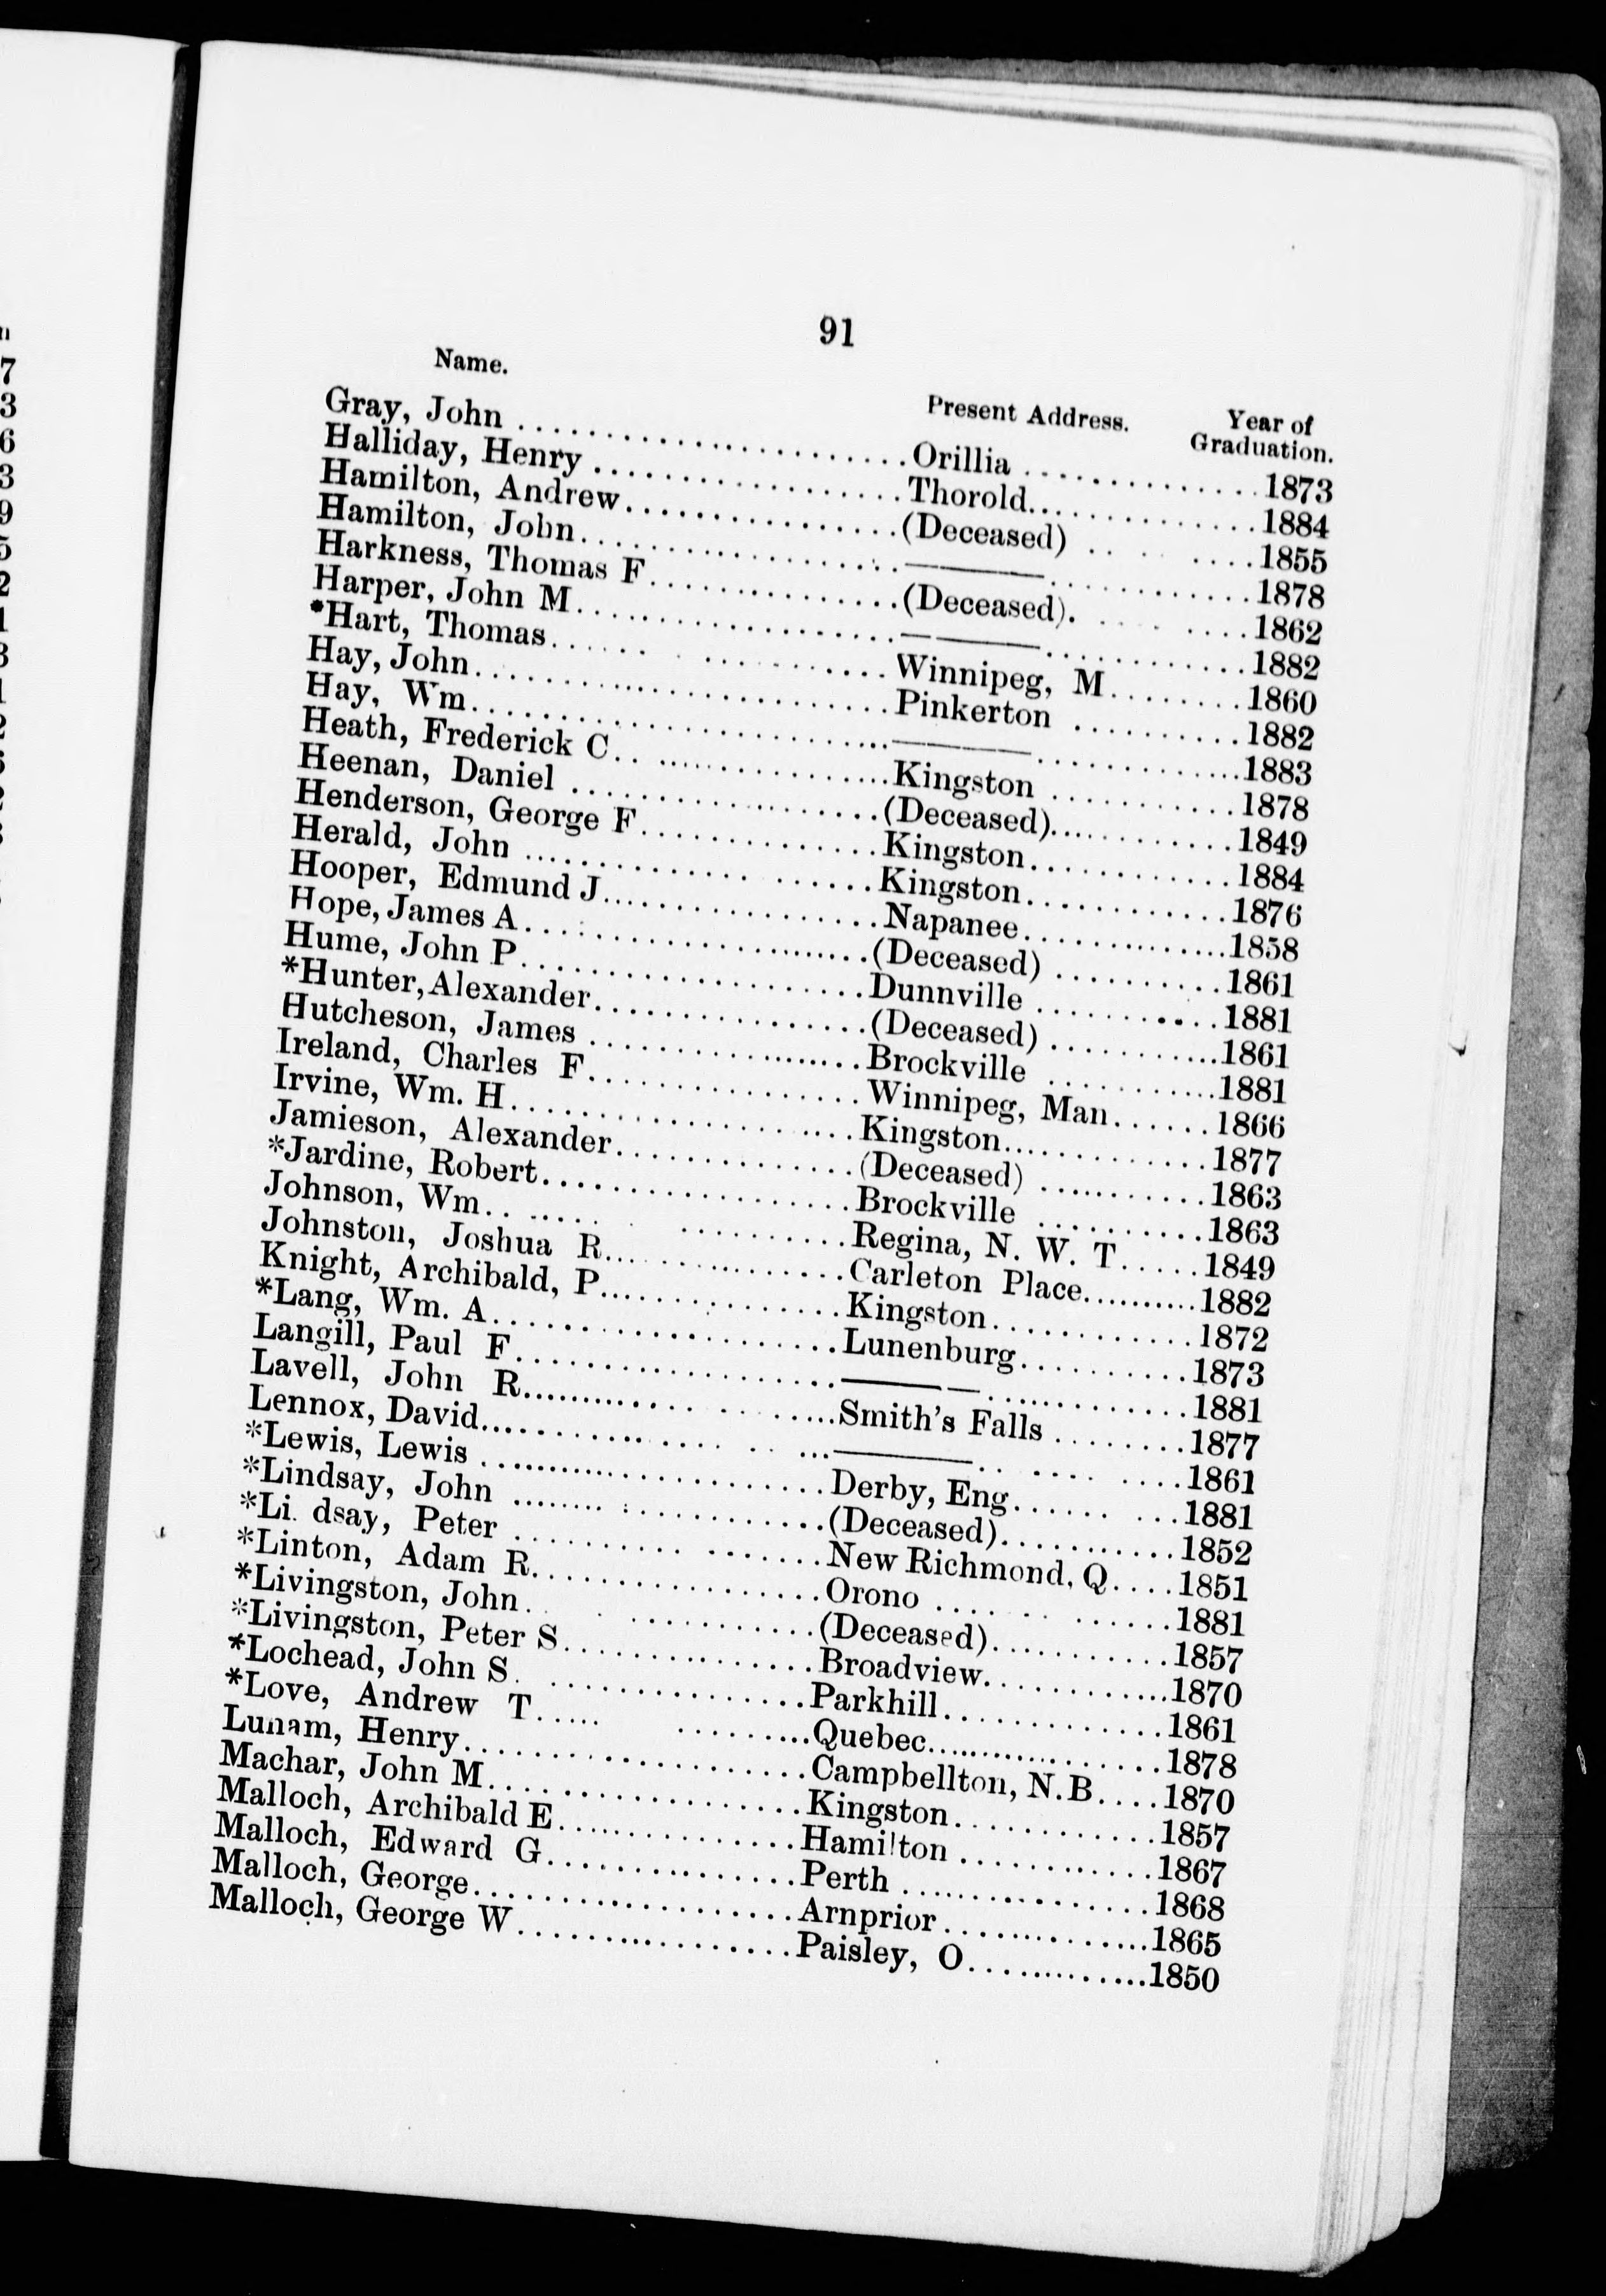 91
Name. Present Address. Year of
Graduation.
Gray, John ........ Orillia ........ 1873
Halliday, Henry ........ Thorold ........ 1884
Hamilton, Andrew ........ (Deceased) ........ 1855
Hamilton, John ........ ——— ........ 1878
Harkness, Thomas F ........ (Deceased) ........ 1862
Harper, John M ........ ——— ........ 1882
*Hart, Thomas ........ Winnipeg, M ........ 1860
Hay, John ........ Pinkerton ........ 1882
Hay, Wm ........ ——— ........ 1883
Heath, Frederick C ........ Kingston ........ 1878
Heenan, Daniel ........ (Deceased) ........ 1849
Henderson, George F ........ Kingston ........ 1884
Herald, John ........ Kingston ........ 1876
Hooper, Edmund J ........ Napanee ........ 1858
Hope, James A ........ (Deceased) ........ 1861
Hume, John P ........ Dunnville ........ 1881
*Hunter, Alexander ........ (Deceased) ........ 1861
Hutcheson, James ........ Brockville ........ 1881
Ireland, Charles F ........ Winnipeg, Man ........ 1866
Irvine, Wm. H ........ Kingston ........ 1877
Jamieson, Alexander ........ (Deceased) ........ 1863
*Jardine, Robert ........ Brockville ........ 1863
Johnson, Wm ........ Regina, N. W. T ........ 1849
Johnston, Joshua R ........ Carleton Place ........ 1882
Knight, Archibald, P ........ Kingston ........ 1872
*Lang, Wm. A ........ Lunenburg ........ 1873
Langill, Paul F ........ ——— ........ 1881
Lavell, John R ........ Smith's Falls ........ 1877
Lennox, David ........ ——— ........ 1861
*Lewis, Lewis ........ Derby, Eng ........ 1881
*Lindsay, John ........ (Deceased) ........ 1852
*Li. dsay, Peter ........ New Richmond, Q ........ 1851
*Linton, Adam R ........ Orono ........ 1881
*Livingston, John ........ (Deceased) ........ 1857
*Livingston, Peter S ........ Broadview ........ 1870
*Lochead, John S ........ Parkhill ........ 1861
*Love, Andrew T ........ Quebec ........ 1878
Lunam, Henry ........ Campbellton, N.B ........ 1870
Machar, John M ........ Kingston ........ 1857
Malloch, Archibald E ........ Hamilton ........ 1867
Malloch, Edward G ........ Perth ........ 1868
Malloch, George ........ Arnprior ........ 1865
Malloch, George W ........ Paisley, O ........ 1850